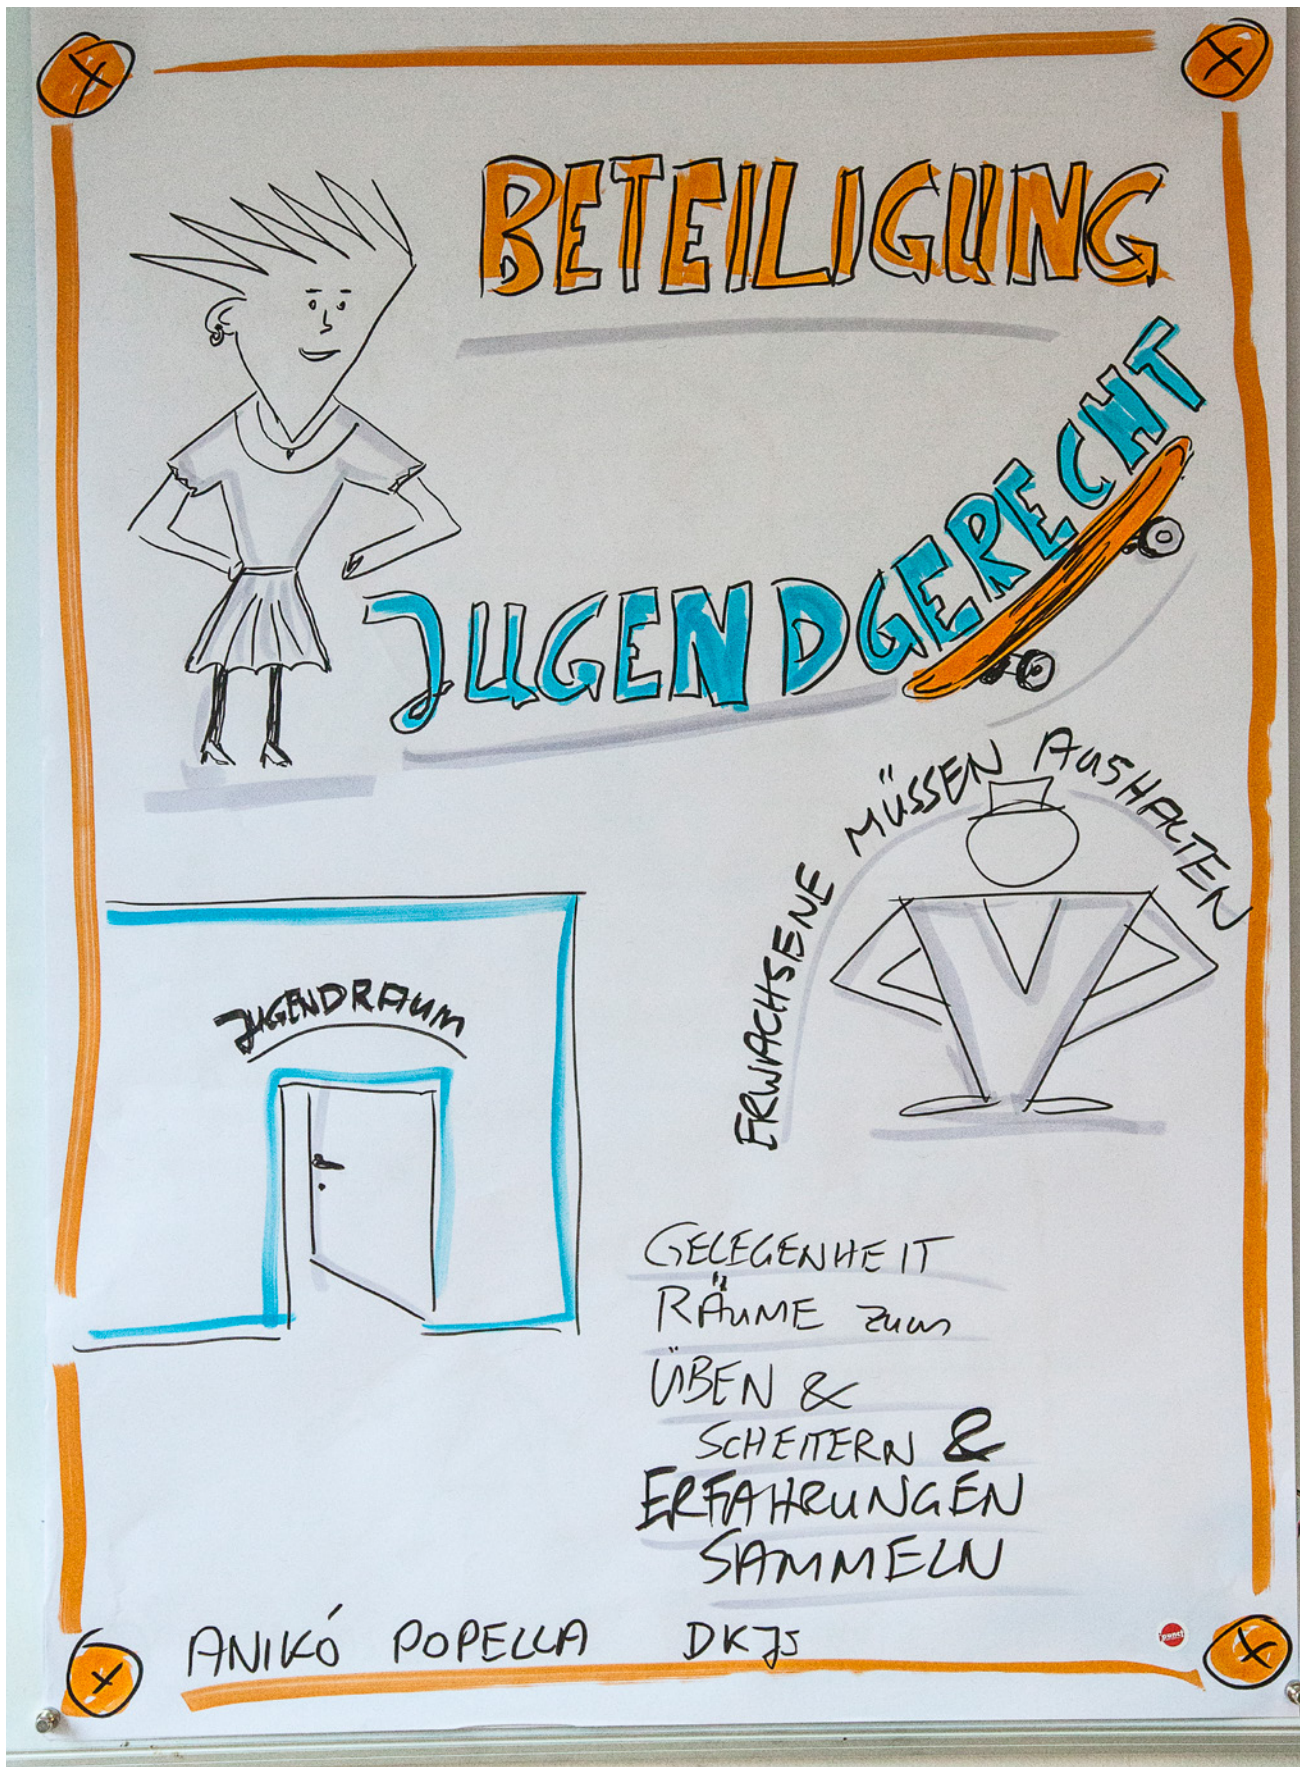 BETEILIGUNG
JUGENDGERECHT
ERWACHSENE MÜSSEN AUSHALTEN
JUGENDRAUM
GELEGENHEIT
RÄUME zum
ÜBEN &
SCHEITERN &
ERFAHRUNGEN
SAMMELN
ANIKÓ POPELLA DKJS